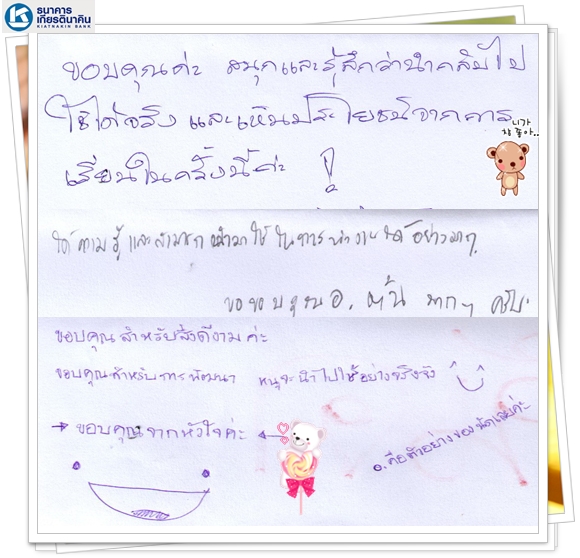 ธนาคาร
เกียรตินาคิน
KIATNAKIN BANK
ขอบคุณค่ะ สนุกและรู้สึกว่านำกลับไป
ใช้ได้จริง และเห็นประโยชน์จากการ
เรียนในครั้งนี้ค่ะ !
니가
참 좋아..
ได้ความรู้ และสามารถนำมาใช้ ในการทำงานได้อย่างมาก
ขอขอบคุณ อ. ตั้น มากๆ ครับ
ขอบคุณสำหรับสิ่งดีงามค่ะ
ขอบคุณสำหรับการพัฒนา หนูจะนำไปใช้อย่างจริงจัง
→ ขอบคุณจากหัวใจค่ะ
อ. คือตัวอย่างของ ค่ะ